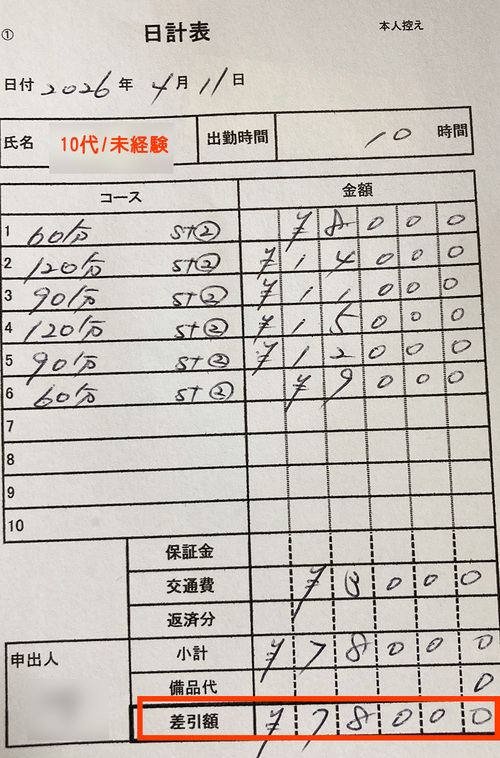 ① 日計表 本人控え
日付 2026 年 4 月 11 日
氏名 10代/未経験 出勤時間 10 時間
コース 金額
1 60分 st② ¥8000
2 120分 st② ¥14000
3 90分 st② ¥11000
4 120分 st② ¥15000
5 90分 st② ¥12000
6 60分 st② ¥9000
7
8
9
10
保証金
交通費
返済分
申出人 小計 ¥78000
備品代 0
差引額 ¥78000